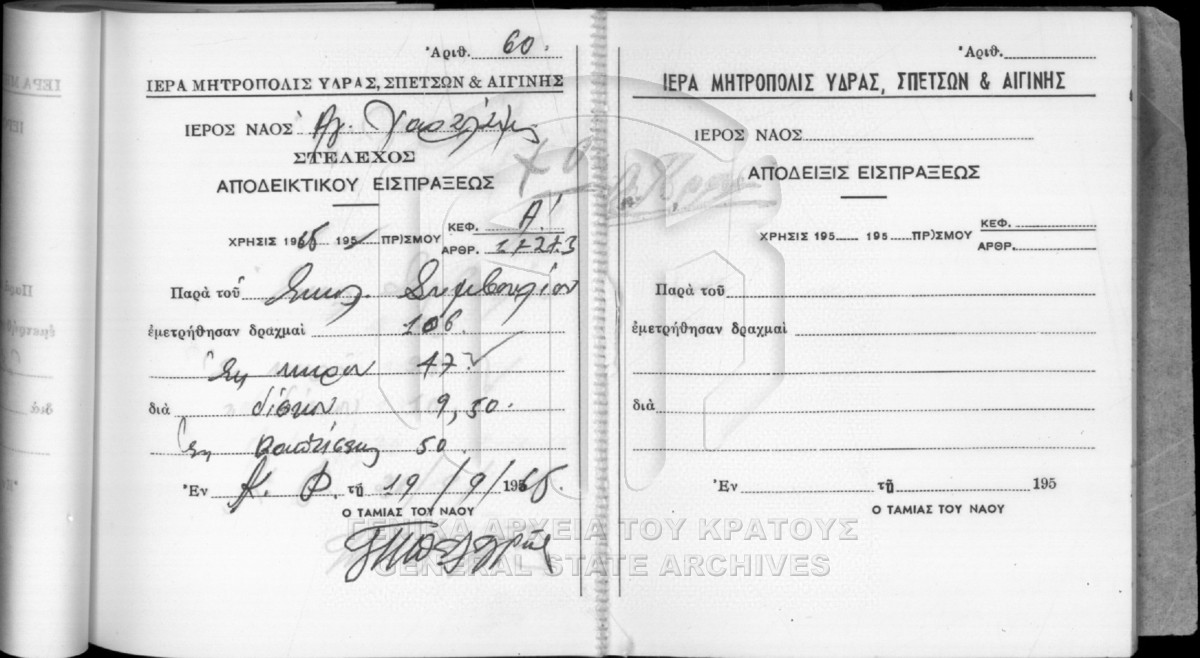 Ἀριθ. 60.
ΙΕΡΑ ΜΗΤΡΟΠΟΛΙΣ ΥΔΡΑΣ, ΣΠΕΤΣΩΝ & ΑΙΓΙΝΗΣ
ΙΕΡΟΣ ΝΑΟΣ Ἁγ.
ΣΤΕΛΕΧΟΣ
ΑΠΟΔΕΙΚΤΙΚΟΥ ΕΙΣΠΡΑΞΕΩΣ
ΚΕΦ. Α!
ΧΡΗΣΙΣ 19 195 ΠΡ)ΣΜΟΥ
ΑΡΘΡ. 1+2+3
Παρὰ τοῦ Ἐκκλ. Συμβουλίου
ἐμετρήθησαν δραχμαὶ 106.
Ἐκ κηρον 47
διὰ δίσκου 9,50.
Ἐκ 50.
Ἐν Α. Φ. τῇ 19/9/1965.
Ο ΤΑΜΙΑΣ ΤΟΥ ΝΑΟΥ
Ἀριθ.
ΙΕΡΑ ΜΗΤΡΟΠΟΛΙΣ ΥΔΡΑΣ, ΣΠΕΤΣΩΝ & ΑΙΓΙΝΗΣ
ΙΕΡΟΣ ΝΑΟΣ
ΑΠΟΔΕΙΞΙΣ ΕΙΣΠΡΑΞΕΩΣ
ΚΕΦ.
ΧΡΗΣΙΣ 195 195 ΠΡ)ΣΜΟΥ
ΑΡΘΡ.
Παρὰ τοῦ
ἐμετρήθησαν δραχμαὶ
διὰ
Ἐν τῇ 195
Ο ΤΑΜΙΑΣ ΤΟΥ ΝΑΟΥ
ΓΕΝΙΚΑ ΑΡΧΕΙΑ ΤΟΥ ΚΡΑΤΟΥΣ
GENERAL STATE ARCHIVES